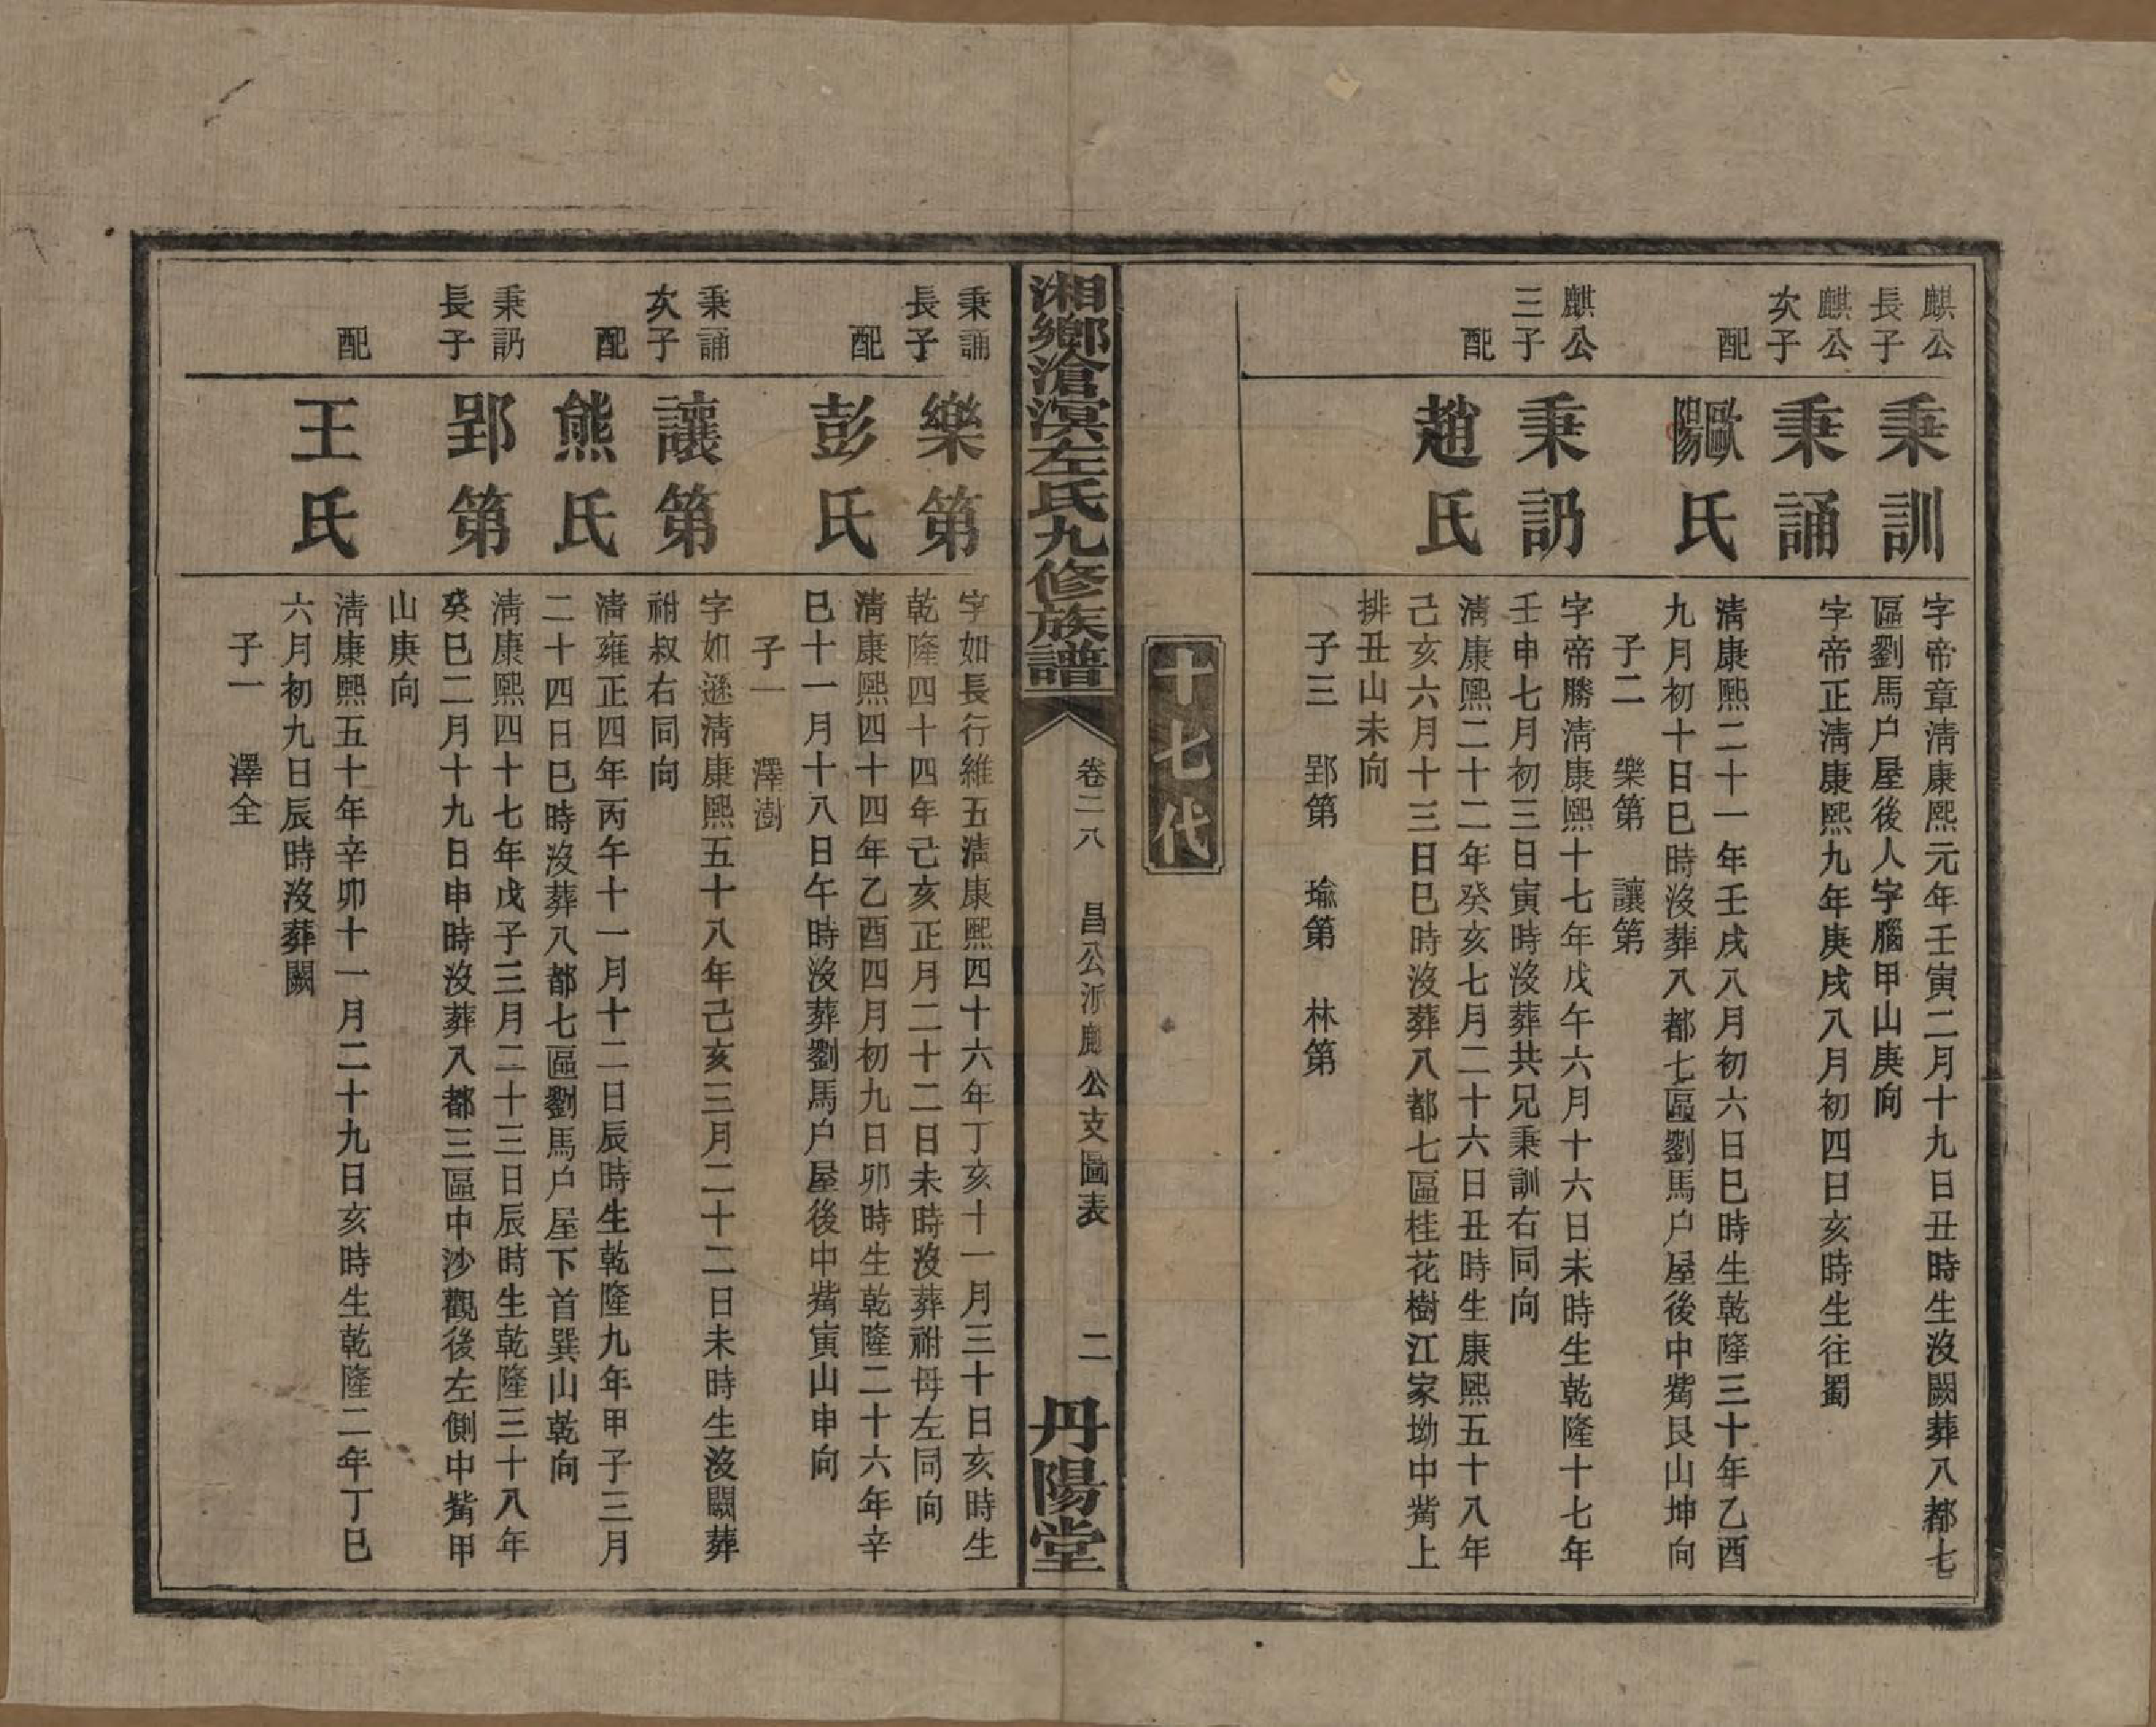 麒公
長子
秉訓
字帝章淸康熙元年壬寅二月十九日丑時生沒闕葬八都七
區劉馬户屋後人字腦甲山庚向
麒公
次子
秉誦
字帝正淸康熙九年庚戌八月初四日亥時生往蜀
配
歐陽氏
淸康熙二十一年壬戌八月初六日巳時生乾隆三十年乙酉
九月初十日巳時沒葬八都七區劉馬户屋後中觜艮山坤向
子二 樂第 讓第
麒公
三子
秉訒
字帝勝淸康熙十七年戊午六月十六日未時生乾隆十七年
壬申七月初三日寅時沒葬共兄秉訓右同向
配
趙氏
淸康熙二十二年癸亥七月二十六日丑時生康熙五十八年
己亥六月十三日巳時沒葬八都七區桂花樹江家坳中觜上
排丑山未向
子三 郢第 瑜第 林第
十七代
湘鄉滄溟左氏九修族譜
卷二八 昌公派廊公支圖表 二
丹陽堂
秉誦
長子
樂第
字如長行維五淸康熙四十六年丁亥十一月三十日亥時生
乾隆四十四年己亥正月二十二日未時沒葬祔母左同向
配
彭氏
淸康熙四十四年乙酉四月初九日卯時生乾隆二十六年辛
巳十一月十八日午時沒葬劉馬户屋後中觜寅山申向
子一 澤澍
秉誦
次子
讓第
字如遜淸康熙五十八年己亥三月二十二日未時生沒闕葬
祔叔右同向
配
熊氏
淸雍正四年丙午十一月十二日辰時生乾隆九年甲子三月
二十四日巳時沒葬八都七區劉馬户屋下首巽山乾向
秉訒
長子
郢第
淸康熙四十七年戊子三月二十三日辰時生乾隆三十八年
癸巳二月十九日申時沒葬八都三區中沙觀後左側中觜甲
山庚向
配
王氏
淸康熙五十年辛卯十一月二十九日亥時生乾隆二年丁巳
六月初九日辰時沒葬闕
子一 澤全